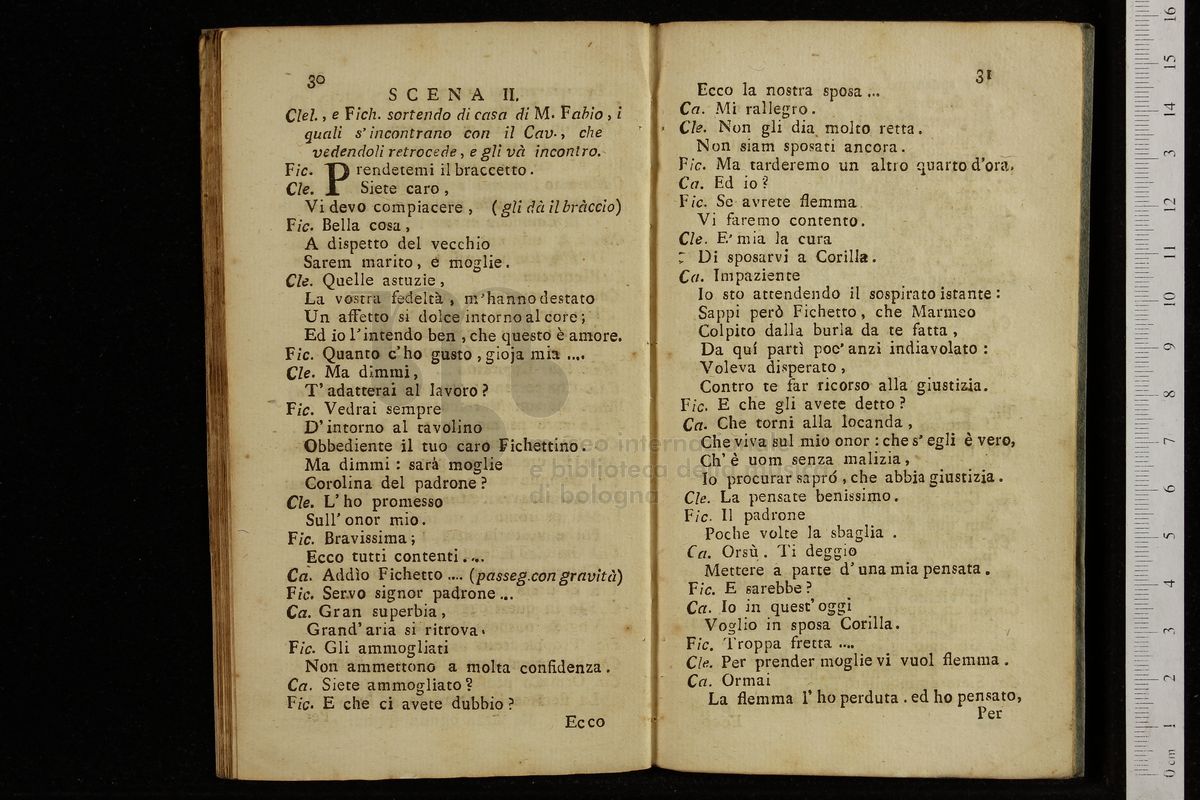 30
SCENA II.
Clel., e Fich. sortendo di casa di M. Fabio, i
quali s'incontrano con il Cav., che
vedendoli retrocede, e gli và incontro.
Fic. Prendetemi il braccetto.
Cle. Siete caro,
Vi devo compiacere, (gli dà il bràccio)
Fic. Bella cosa,
A dispetto del vecchio
Sarem marito, e moglie.
Cle. Quelle astuzie,
La vostra fedeltà, m'hanno destato
Un affetto si dolce intorno al core;
Ed io l'intendo ben, che questo è amore.
Fic. Quanto c'ho gusto, gioja mia ....
Cle. Ma dimmi,
T'adatterai al lavoro?
Fic. Vedrai sempre
D'intorno al tavolino
Obbediente il tuo caro Fichettino.
Ma dimmi: sarà moglie
Corolina del padrone?
Cle. L'ho promesso
Sull'onor mio.
Fic. Bravissima;
Ecco tutti contenti....
Ca. Addìo Fichetto .... (passeg. con gravità)
Fic. Servo signor padrone...
Ca. Gran superbia,
Grand'aria si ritrova.
Fic. Gli ammogliati
Non ammettono a molta confidenza.
Ca. Siete ammogliato?
Fic. E che ci avete dubbio?
Ecco
31
Ecco la nostra sposa...
Ca. Mi rallegro.
Cle. Non gli dia molto retta.
Non siam sposati ancora.
Fic. Ma tarderemo un altro quarto d'ora.
Ca. Ed io?
Fic. Se avrete flemma
Vi faremo contento.
Cle. E' mia la cura
Di sposarvi a Corilla.
Ca. Impaziente
Io sto attendendo il sospirato istante:
Sappi però Fichetto, che Marmeo
Colpito dalla burla da te fatta,
Da quí partì poc'anzi indiavolato:
Voleva disperato,
Contro te far ricorso alla giustizia.
Fic. E che gli avete detto?
Ca. Che torni alla locanda,
Che viva sul mio onor: che s'egli è vero,
Ch'è uom senza malizia,
Io procurar sapró, che abbia giustizia.
Cle. La pensate benissimo.
Fic. Il padrone
Poche volte la sbaglia.
Ca. Orsù. Ti deggio
Mettere a parte d'una mia pensata.
Fic. E sarebbe?
Ca. Io in quest'oggi
Voglio in sposa Corilla.
Fic. Troppa fretta ....
Cle. Per prender moglie vi vuol flemma.
Ca. Ormai
La flemma l'ho perduta. ed ho pensato,
Per
museo internazionale
e biblioteca della musica
di bologna
0 cm 1 2 3 4 5 6 7 8 9 10 11 12 13 14 15 16